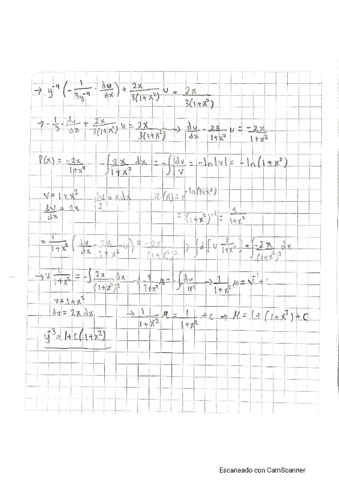 → y⁻⁴ (-1/3y⁻⁴ · du/dx) + 2x/3(1+x²) u = 2x/3(1+x²)
→ -1/3 · du/dx + 2x/3(1+x²) u = 2x/3(1+x²) → du/dx - 2x/1+x² u = -2x/1+x²
P(x) = -2x/1+x² -∫ 2x/1+x² dx = -∫ dv/v = -ln|v| = -ln(1+x²)
v = 1+x² dv/2 = xdx μ(x) = e^-ln(1+x²)
dv/dx = 2x = (1+x²)⁻¹ = 1/1+x²
= 1/1+x² (du/dx - 2x/1+x² u) = -2x/(1+x²)² → ∫d[u 1/1+x²] = ∫-2x/(1+x²)² dx
→ u 1/1+x² = -∫ 2x/(1+x²)² dx → 1/1+x² μ = -∫ dv/v² → 1/1+x² μ = v⁻¹ + c
v = 1+x²
dv = 2x dx → 1/1+x² μ = 1/1+x² + C → μ = 1+(1+x²)+C
y⁻³ = 1+C(1+x²)
Escaneado con CamScanner